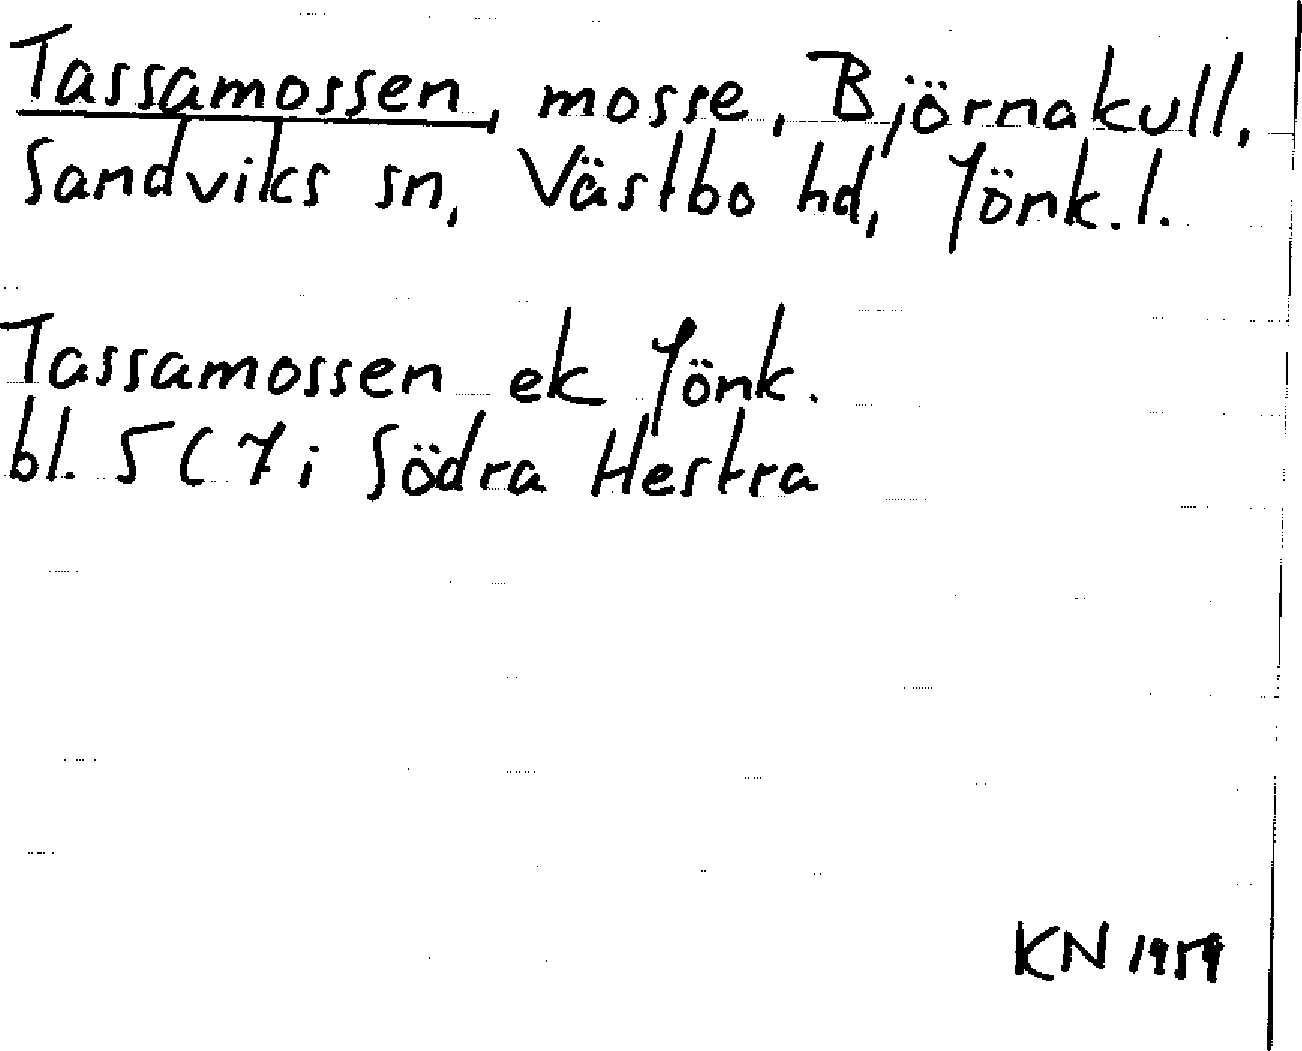 Tassamossen, mosse, Björnakull,
Sandviks sn, Västbo hd, Jönk. l.
Tassamossen ek Jönk.
bl. 5 C 7 i Södra Hestra
KN 1959